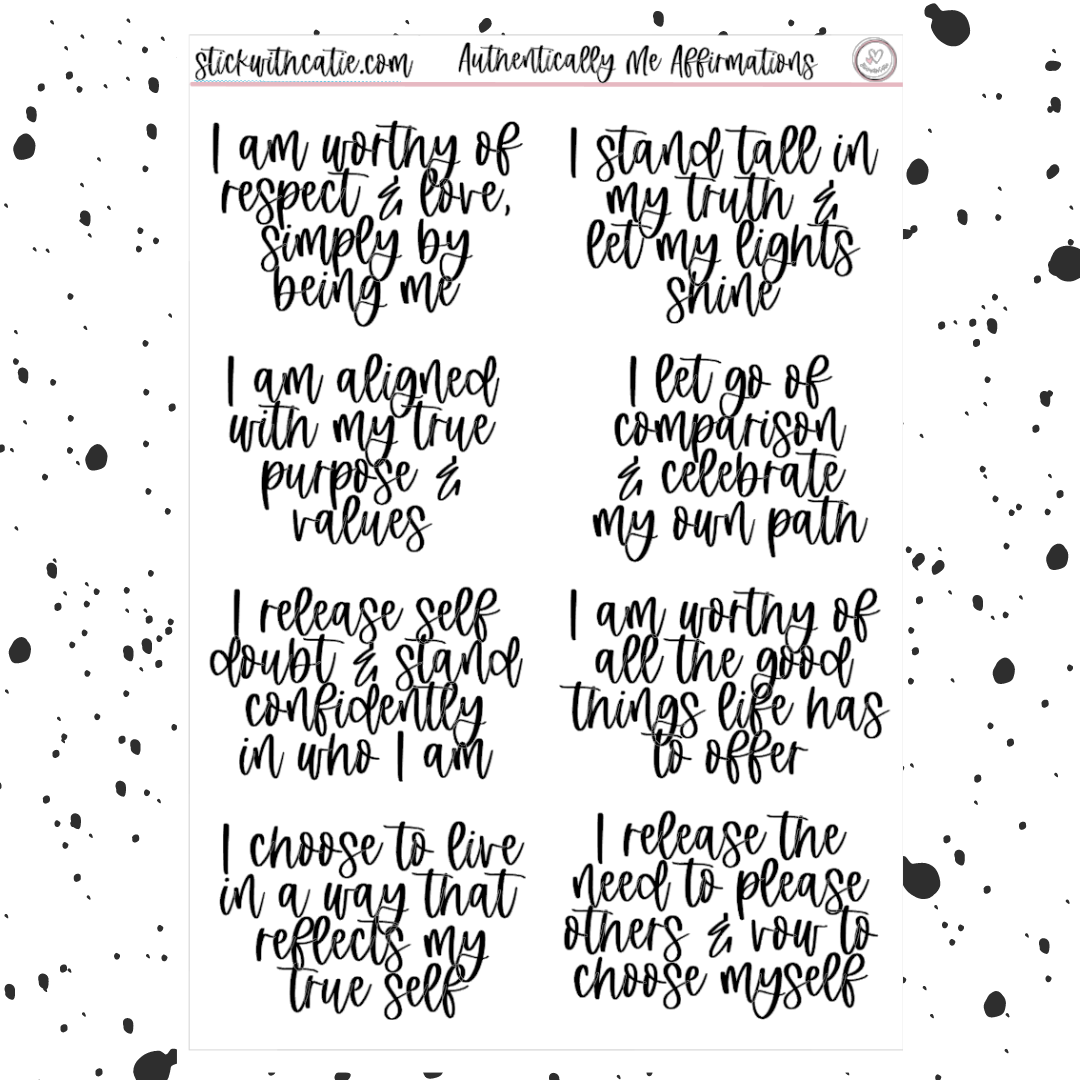 stickwithcatie.com
Authentically Me Affirmations
I am worthy of
respect & love,
simply by
being me
I stand tall in
my truth &
let my lights
shine
I am aligned
with my true
purpose &
values
I let go of
comparison
& celebrate
my own path
I release self
doubt & stand
confidently
in who I am
I am worthy of
all the good
things life has
to offer
I choose to live
in a way that
reflects my
true self
I release the
need to please
others & vow to
choose myself